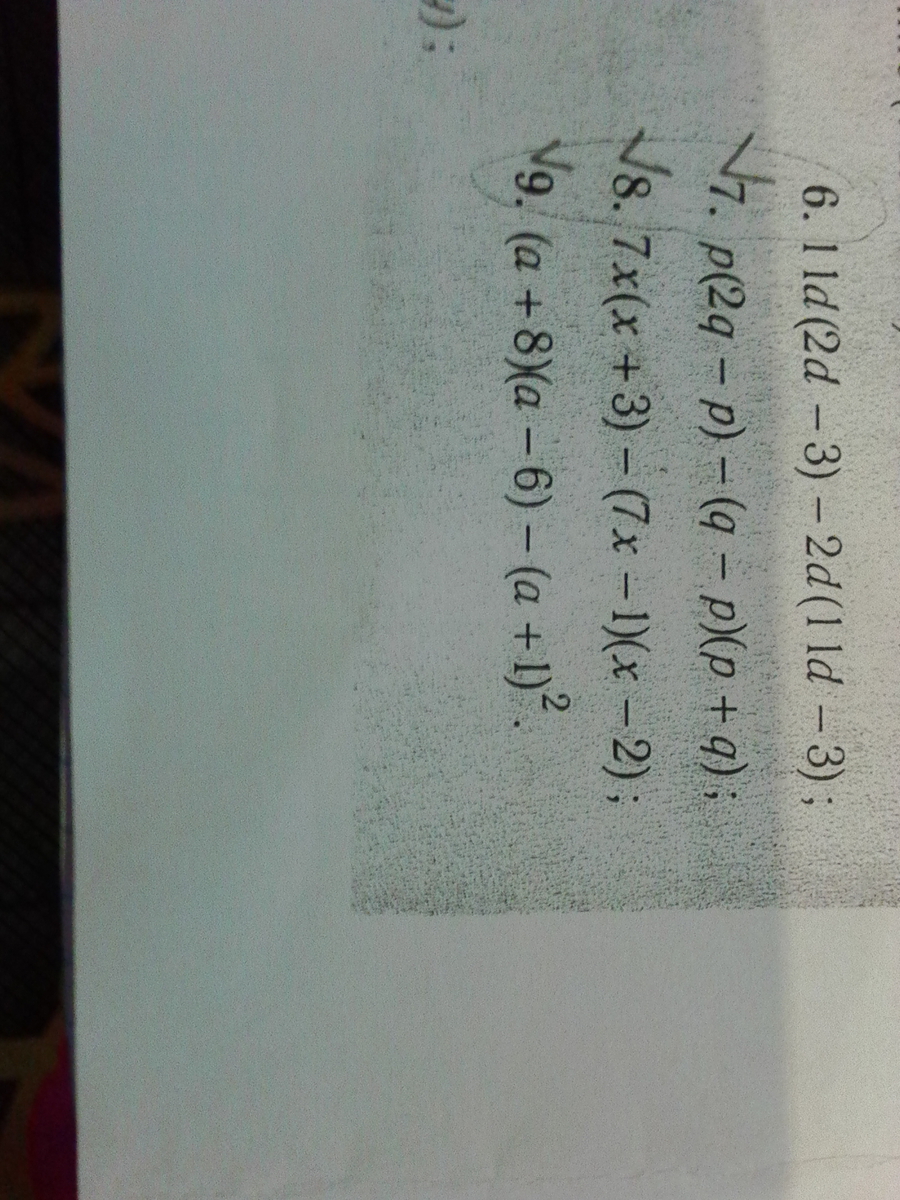 6. 11d(2d – 3) – 2d(11d – 3);
√7. p(2q – p) – (q – p)(p + q);
√8. 7x(x + 3) – (7x – 1)(x – 2);
√9. (a + 8)(a – 6) – (a + 1)².
);